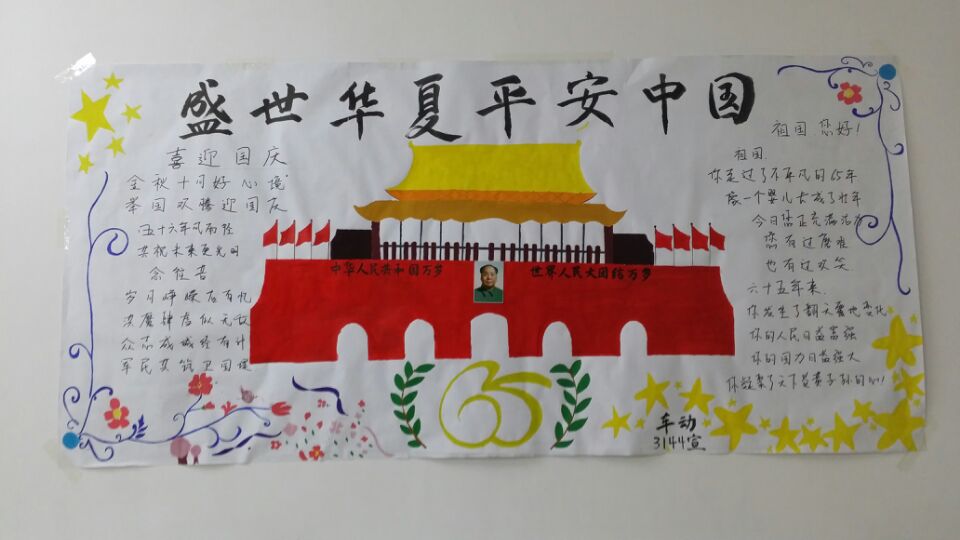 盛世华夏平安中国
喜迎国庆
金秋十月好心境
举国欢腾迎国庆
五十六年风雨路
共祝未来更光明
念往昔
岁月峥嵘应有忆
众志成城终有
军民共筑卫国
祖国您好!
祖国
你走过了不平凡的65年
像一个婴儿长成了壮年
今日您正充满活力
您有过磨难
也有过欢笑
六十五年来
你发生了翻天覆地变化
你的人民日益富强
你的国力日益强大
你凝聚了天下炎黄子孙的心!
中华人民共和国万岁
世界人民大团结万岁
65
车动
3144宣